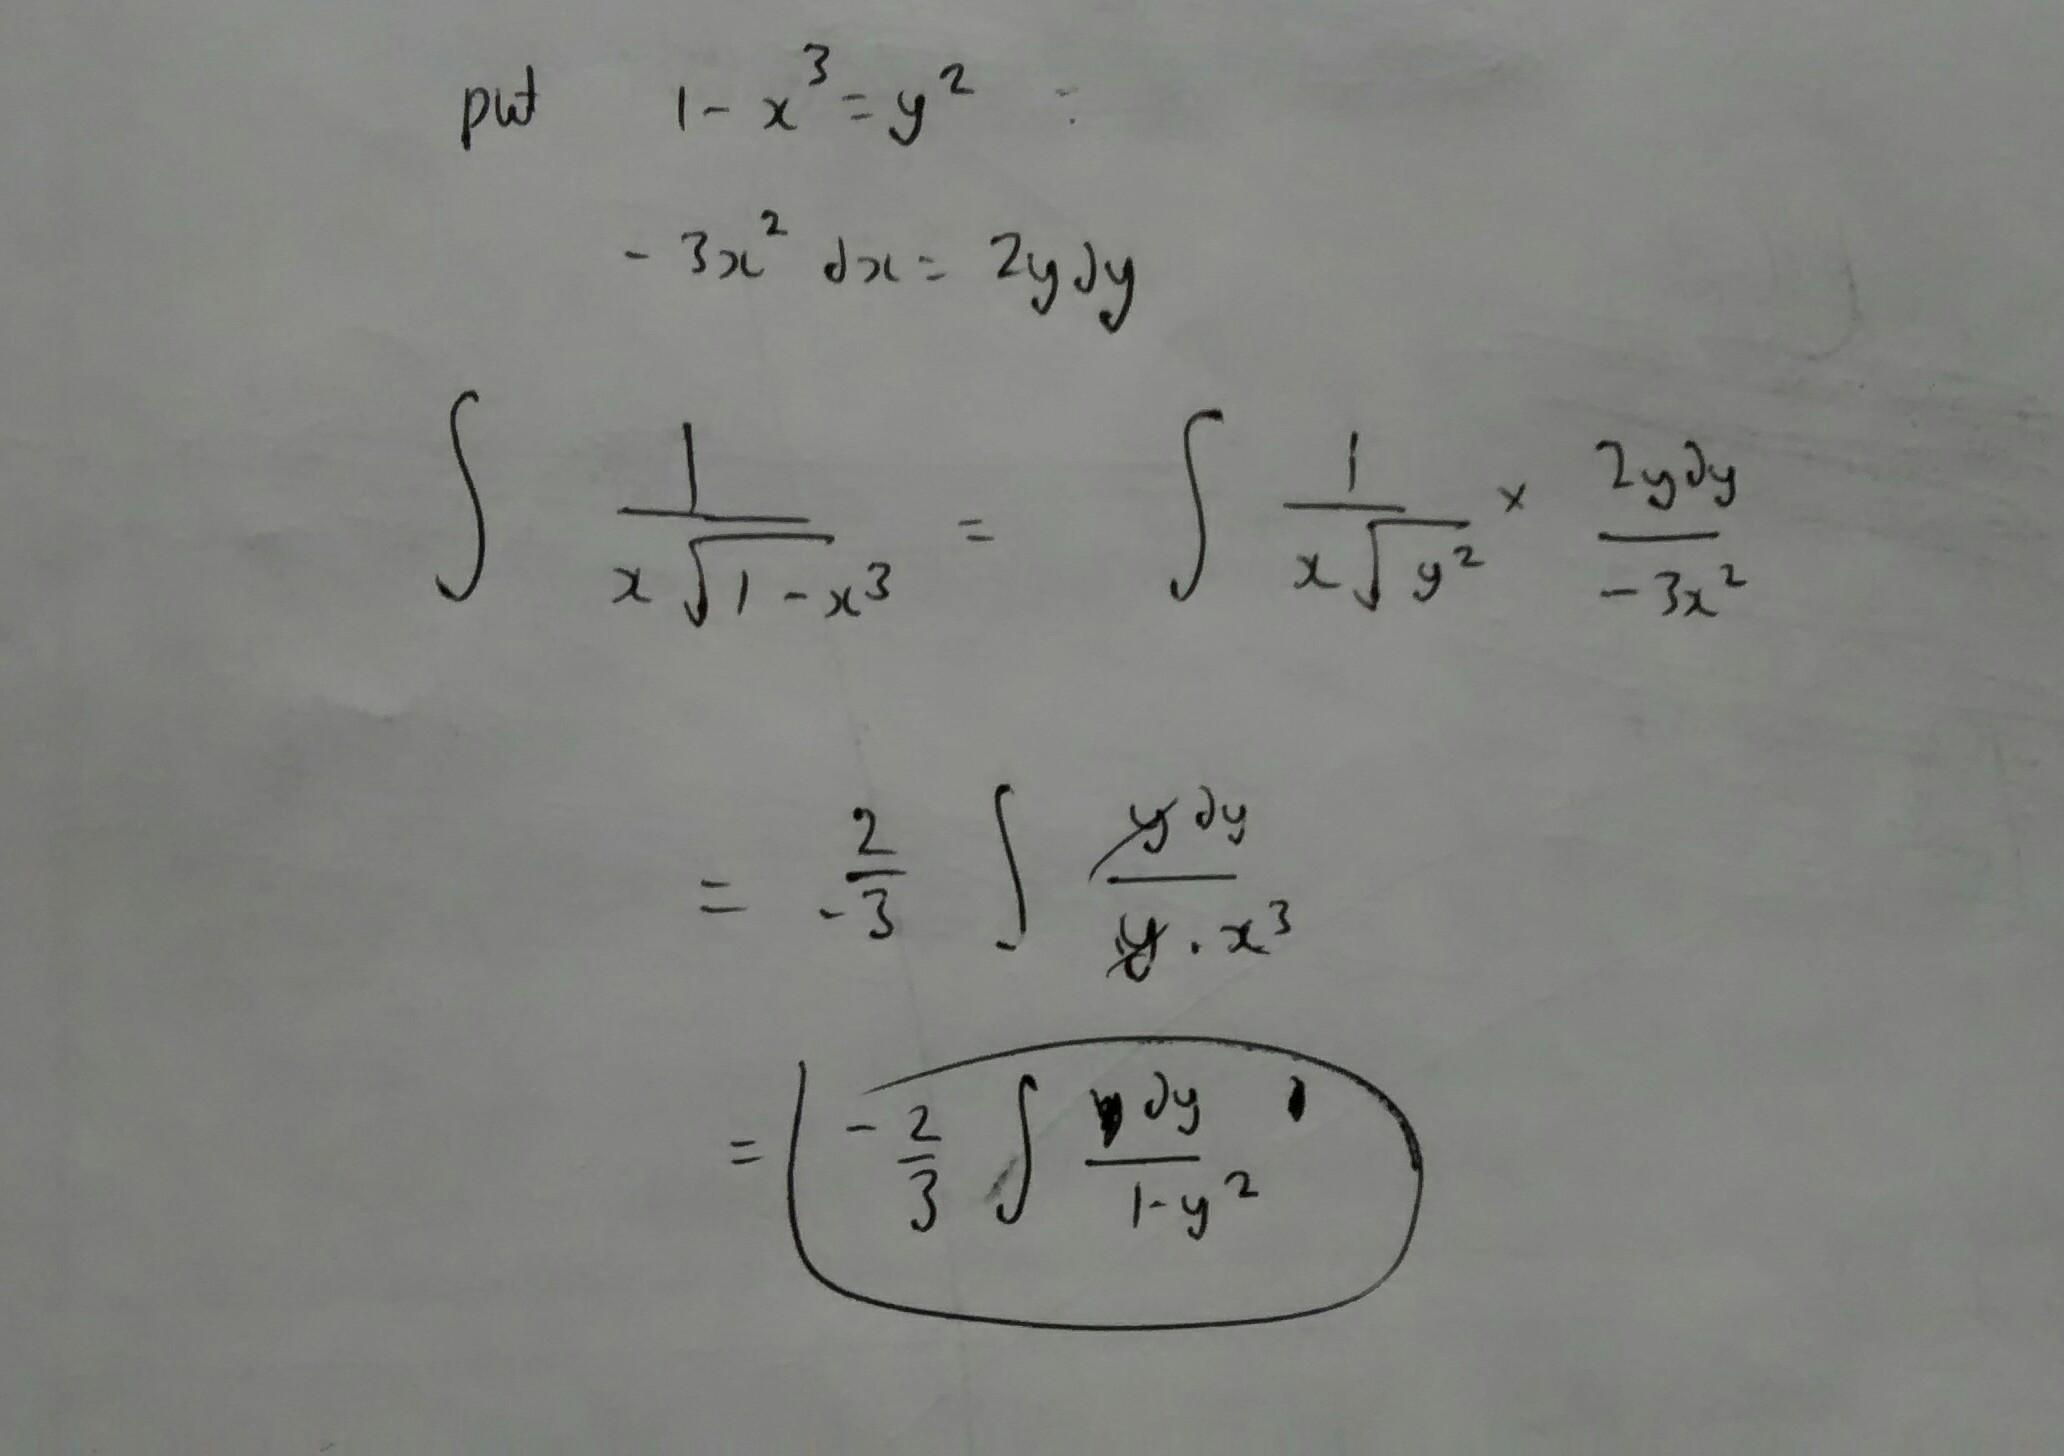 put 1 - x³ = y²
- 3x² dx = 2y dy
∫ 1 / (x √(1 - x³)) = ∫ 1 / (x √(y²)) × 2y dy / (- 3x²)
= 2 / (-3) ∫ y dy / (y . x³)
= - 2/3 ∫ dy / (1 - y²)